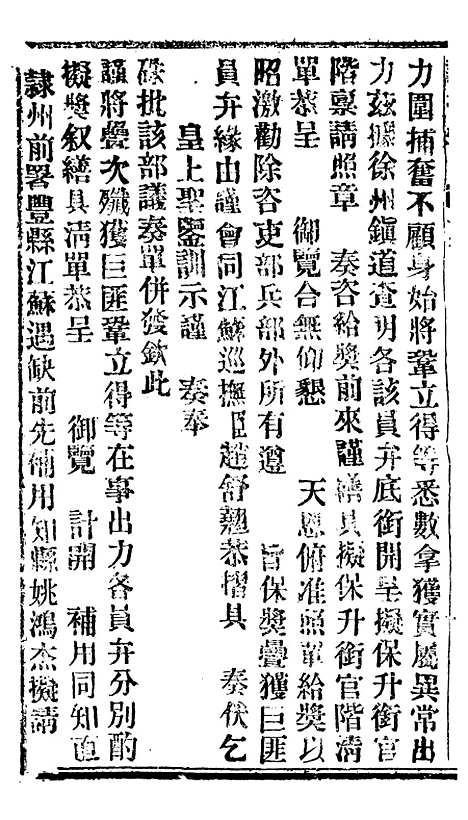 力圍捕奮不顧身始將鞏立得等悉數拿獲實屬異常出
力茲據徐州鎮道查明各該員弁底銜開呈擬保升銜官
階稟請照章　奏咨給獎前來謹繕具擬保升銜官階清
單恭呈　御覽合無仰懇　天恩俯准照單給獎以
昭激勸除咨吏部兵部外所有遵　旨保獎疊獲巨匪
員弁緣由謹會同江蘇巡撫臣趙舒翹恭摺具　奏伏乞
皇上聖鑒訓示謹　奏奉
硃批該部議奏單併發欽此
謹將疊次殲獲巨匪鞏立得等在事出力各員弁分別酌
擬獎敘繕具清單恭呈　御覽　計開　補用同知直
隸州前署豐縣江蘇遇缺前先補用知縣姚鴻杰擬請